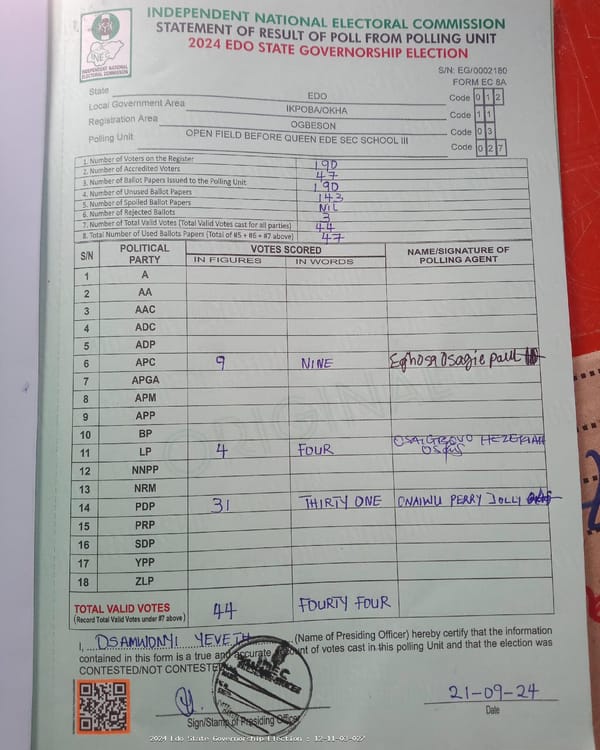 INDEPENDENT NATIONAL ELECTORAL COMMISSION
STATEMENT OF RESULT OF POLL FROM POLLING UNIT
2024 EDO STATE GOVERNORSHIP ELECTION
INEC
INDEPENDENT NATIONAL
ELECTORAL COMMISSION
S/N: EG/0002180
FORM EC 8A
State EDO Code 0 1 2
Local Government Area IKPOBA/OKHA Code 1 1
Registration Area OGBESON Code 0 3
Polling Unit OPEN FIELD BEFORE QUEEN EDE SEC SCHOOL III Code 0 2 7
1. Number of Voters on the Register 190
2. Number of Accredited Voters 47
3. Number of Ballot Papers Issued to the Polling Unit 190
4. Number of Unused Ballot Papers 143
5. Number of Spoiled Ballot Papers NIL
6. Number of Rejected Ballots 3
7. Number of Total Valid Votes (Total Valid Votes cast for all parties) 44
8. Total Number of Used Ballots Papers (Total of #5 + #6 + #7 above) 47
S/N POLITICAL PARTY VOTES SCORED NAME/SIGNATURE OF POLLING AGENT
IN FIGURES IN WORDS
1 A
2 AA
3 AAC
4 ADC
5 ADP
6 APC 9 NINE Eghosa Osagie paul
7 APGA
8 APM
9 APP
10 BP
11 LP 4 FOUR HEZEKIAH
12 NNPP
13 NRM
14 PDP 31 THIRTY ONE ONAIWU PERRY JOLLY
15 PRP
16 SDP
17 YPP
18 ZLP
ORIGINAL
TOTAL VALID VOTES 44 FOURTY FOUR
(Record Total Valid Votes under #7 above)
I, OSAMWONYI (Name of Presiding Officer) hereby certify that the information
contained in this form is a true and accurate account of votes cast in this polling Unit and that the election was
CONTESTED/NOT CONTESTED
INEC
Sign/Stamp of Presiding Officer
21-09-24
Date
2024 Edo State Governorship Election : 12-11-03-027